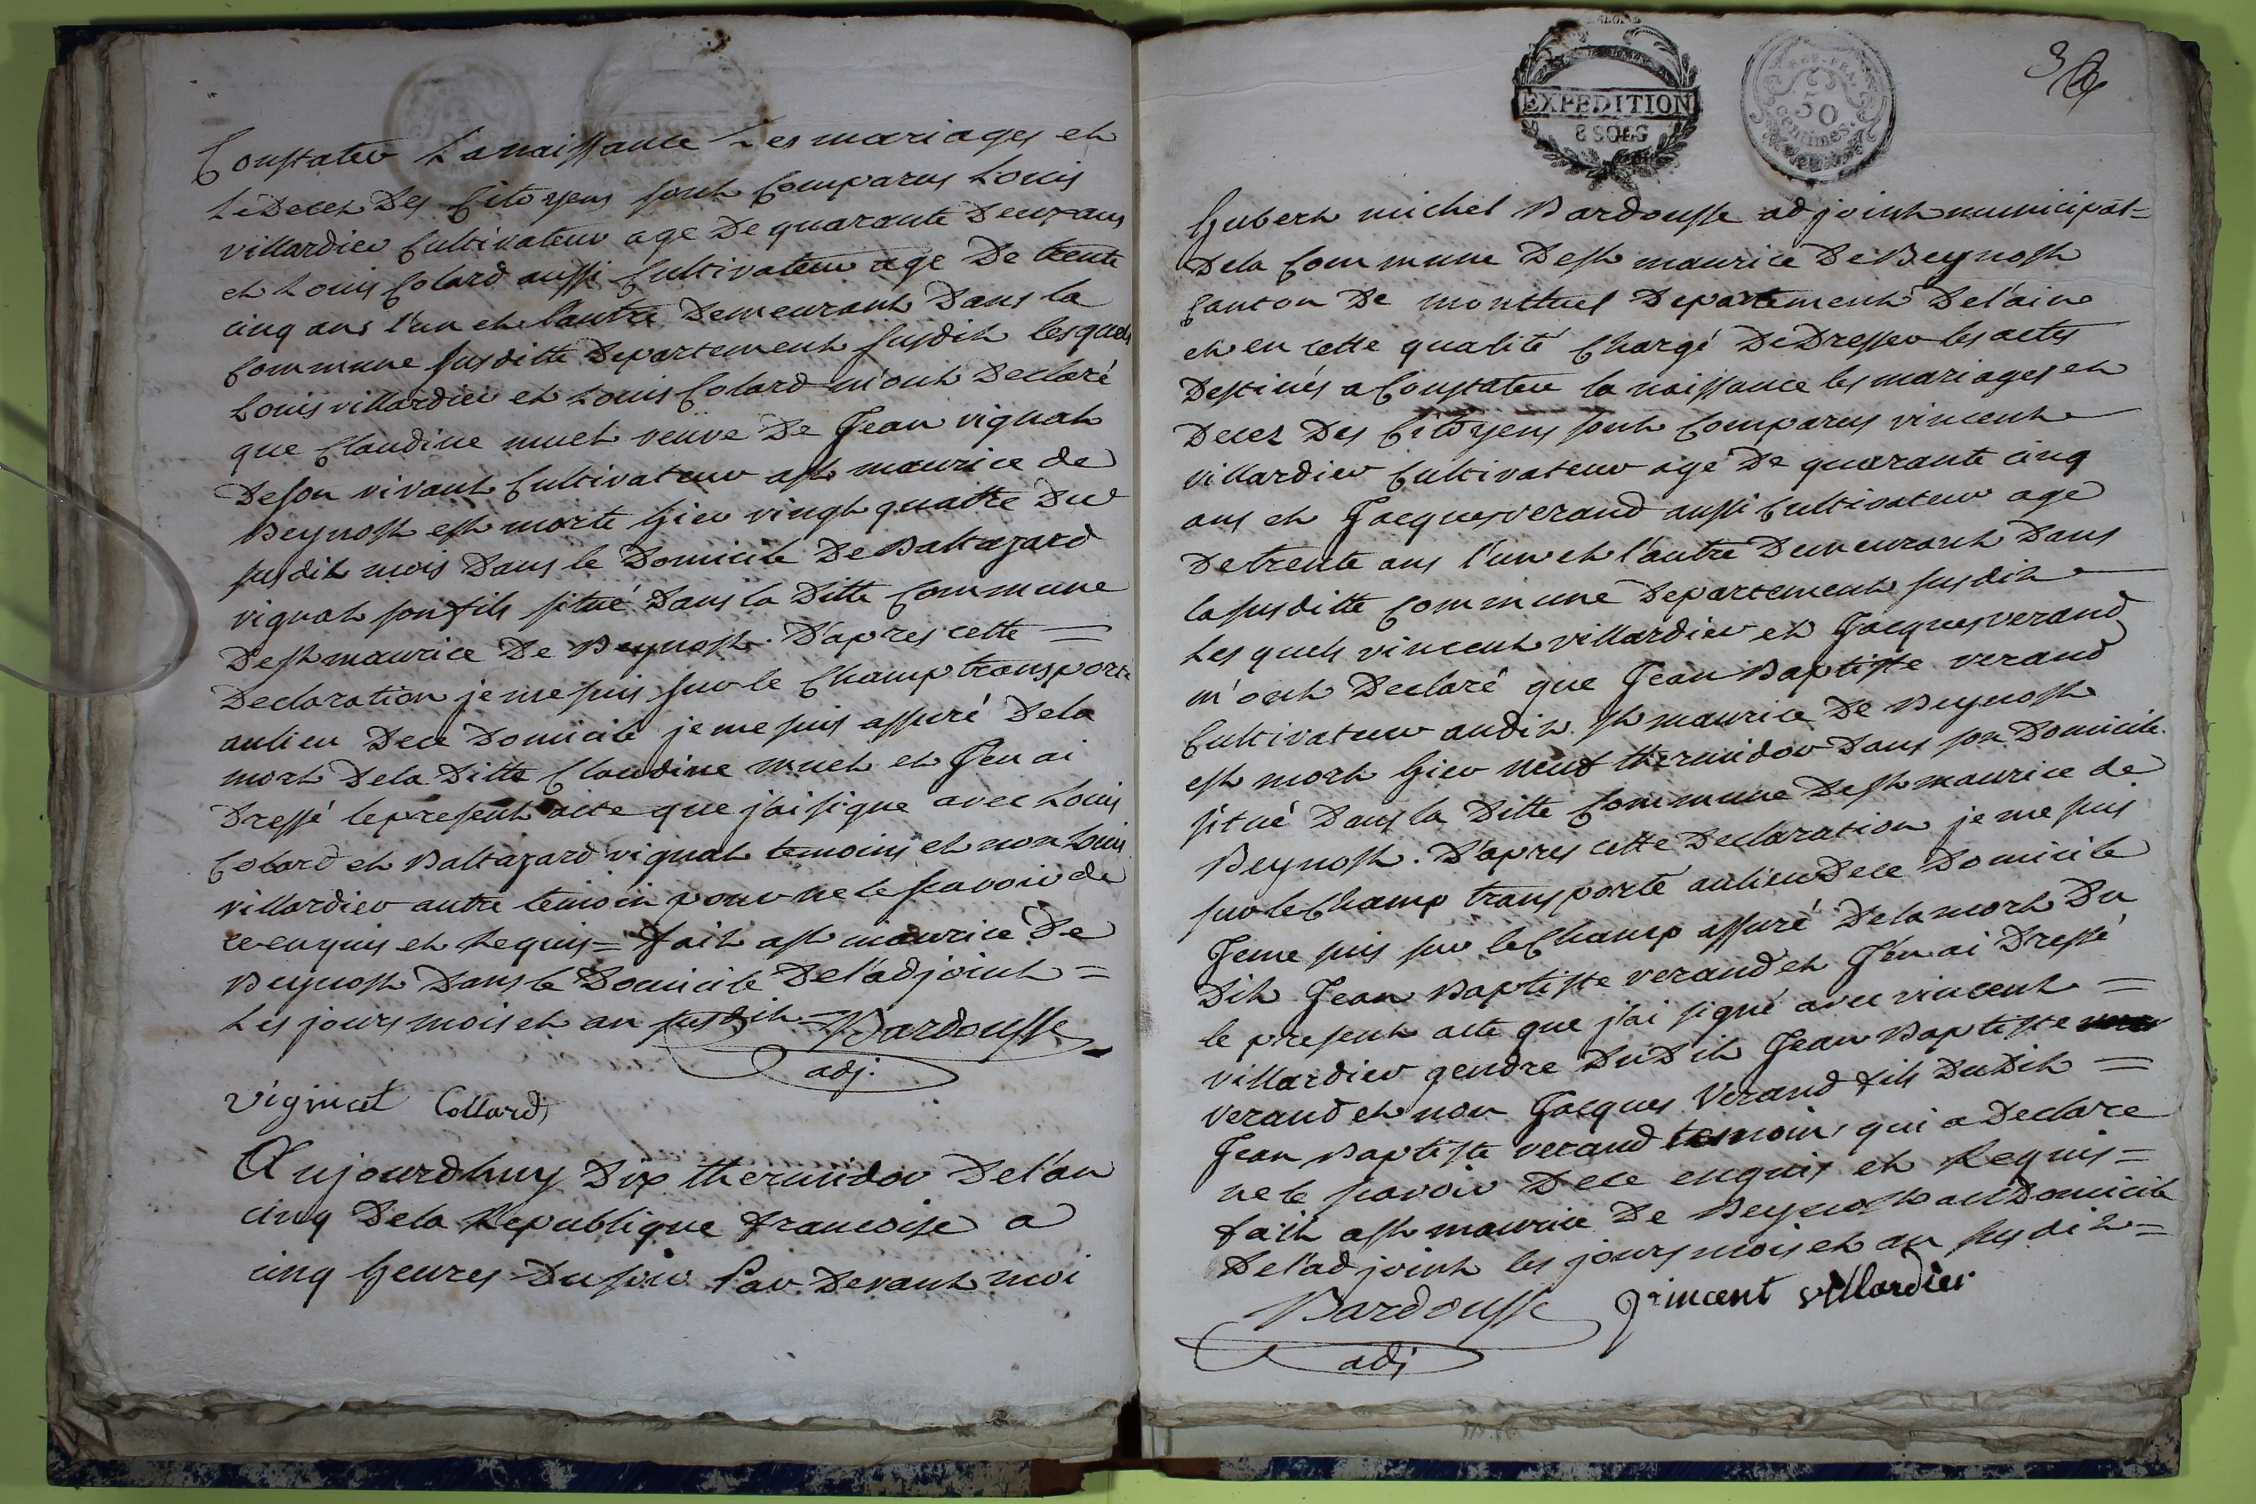 Constater La naissance Les mariages et
Le Decet Des Citoyens sont Comparus Louis
villardier Cultivateur age De quarante Deux ans
et Louis Colard aussi Cultivateur age De trente
cinq ans l'un et l'autre Demeurant Dans la
Commune susditte Departement susdit lesquels
Louis villardier et Louis Colard m'ont Declaré
que Claudine muet veuve De Jean vignat
De son vivant Cultivateur a st maurice de
Beynost est morte hier vingt quatre Du
susdit mois Dans le Domicile De Baltazard
vignat son fils situé Dans la Ditte Commune
De st maurice De Beynost. D'apres cette =
Declaration je me suis sur le Champ transporté
au lieu De ce Domicile je me suis assuré De la
mort De la Ditte Claudine muet et J'en ai
Dressé le present acte que j'ai signe avec Louis
Colard et Baltazard vignat temoins et non Louis
villardier autre temoin pour ne le scavoir de
ce enquis et Requis = fait a st maurice De
Beynost Dans le Domicile De l'adjoint =
Les jours mois et an susdit = Bardousse
adj.
vignat Collard
Aujourdhuy Dix thermidor De l'an
cinq De la Republique francoise a
cinq heures Du soir Par Devant moi
EXPEDITION
8 SOLS
REP. FRA.
50
centimes.
36
hubert michel Bardousse adjoint municipal =
De la Commune De st maurice De Beynost
Canton De montluel Departement De l'ain
et en cette qualité Chargé De Dresser les actes
Destinés a Constater la naissance les mariages et
Decez Des Citoyens sont Comparus vincent
villardier Cultivateur age De quarante cinq
ans et Jacques verand aussi Cultivateur age
De trente ans l'un et l'autre Demeurant Dans
la susditte Commune Departement susdit
Les quels vincent villardier et Jacques verand
m'ont Declaré que Jean Baptiste verand
Cultivateur audit st maurice De Beynost
est mort hier neuf thermidor Dans son Domicile.
situé Dans la Ditte Commune De st maurice de
Beynost. D'apres cette Declaration je me suis
sur le Champ transporté au lieu De ce Domicile
Je me suis sur le Champ assuré De la mort Du
Dit Jean Baptiste verand et J'en ai Dressé
le present acte que j'ai signé avec vincent =
villardier gendre Du Dit Jean Baptiste
verand et non Jacques Verand fils Du Dit =
Jean Baptiste verand temoin, qui a Declare
ne le scavoir De ce enquis et Requis =
fait a st maurice De Beynost au Domicile
De l'adjoint les jours mois et an susdit =
Bardousse vincent villardier
adj